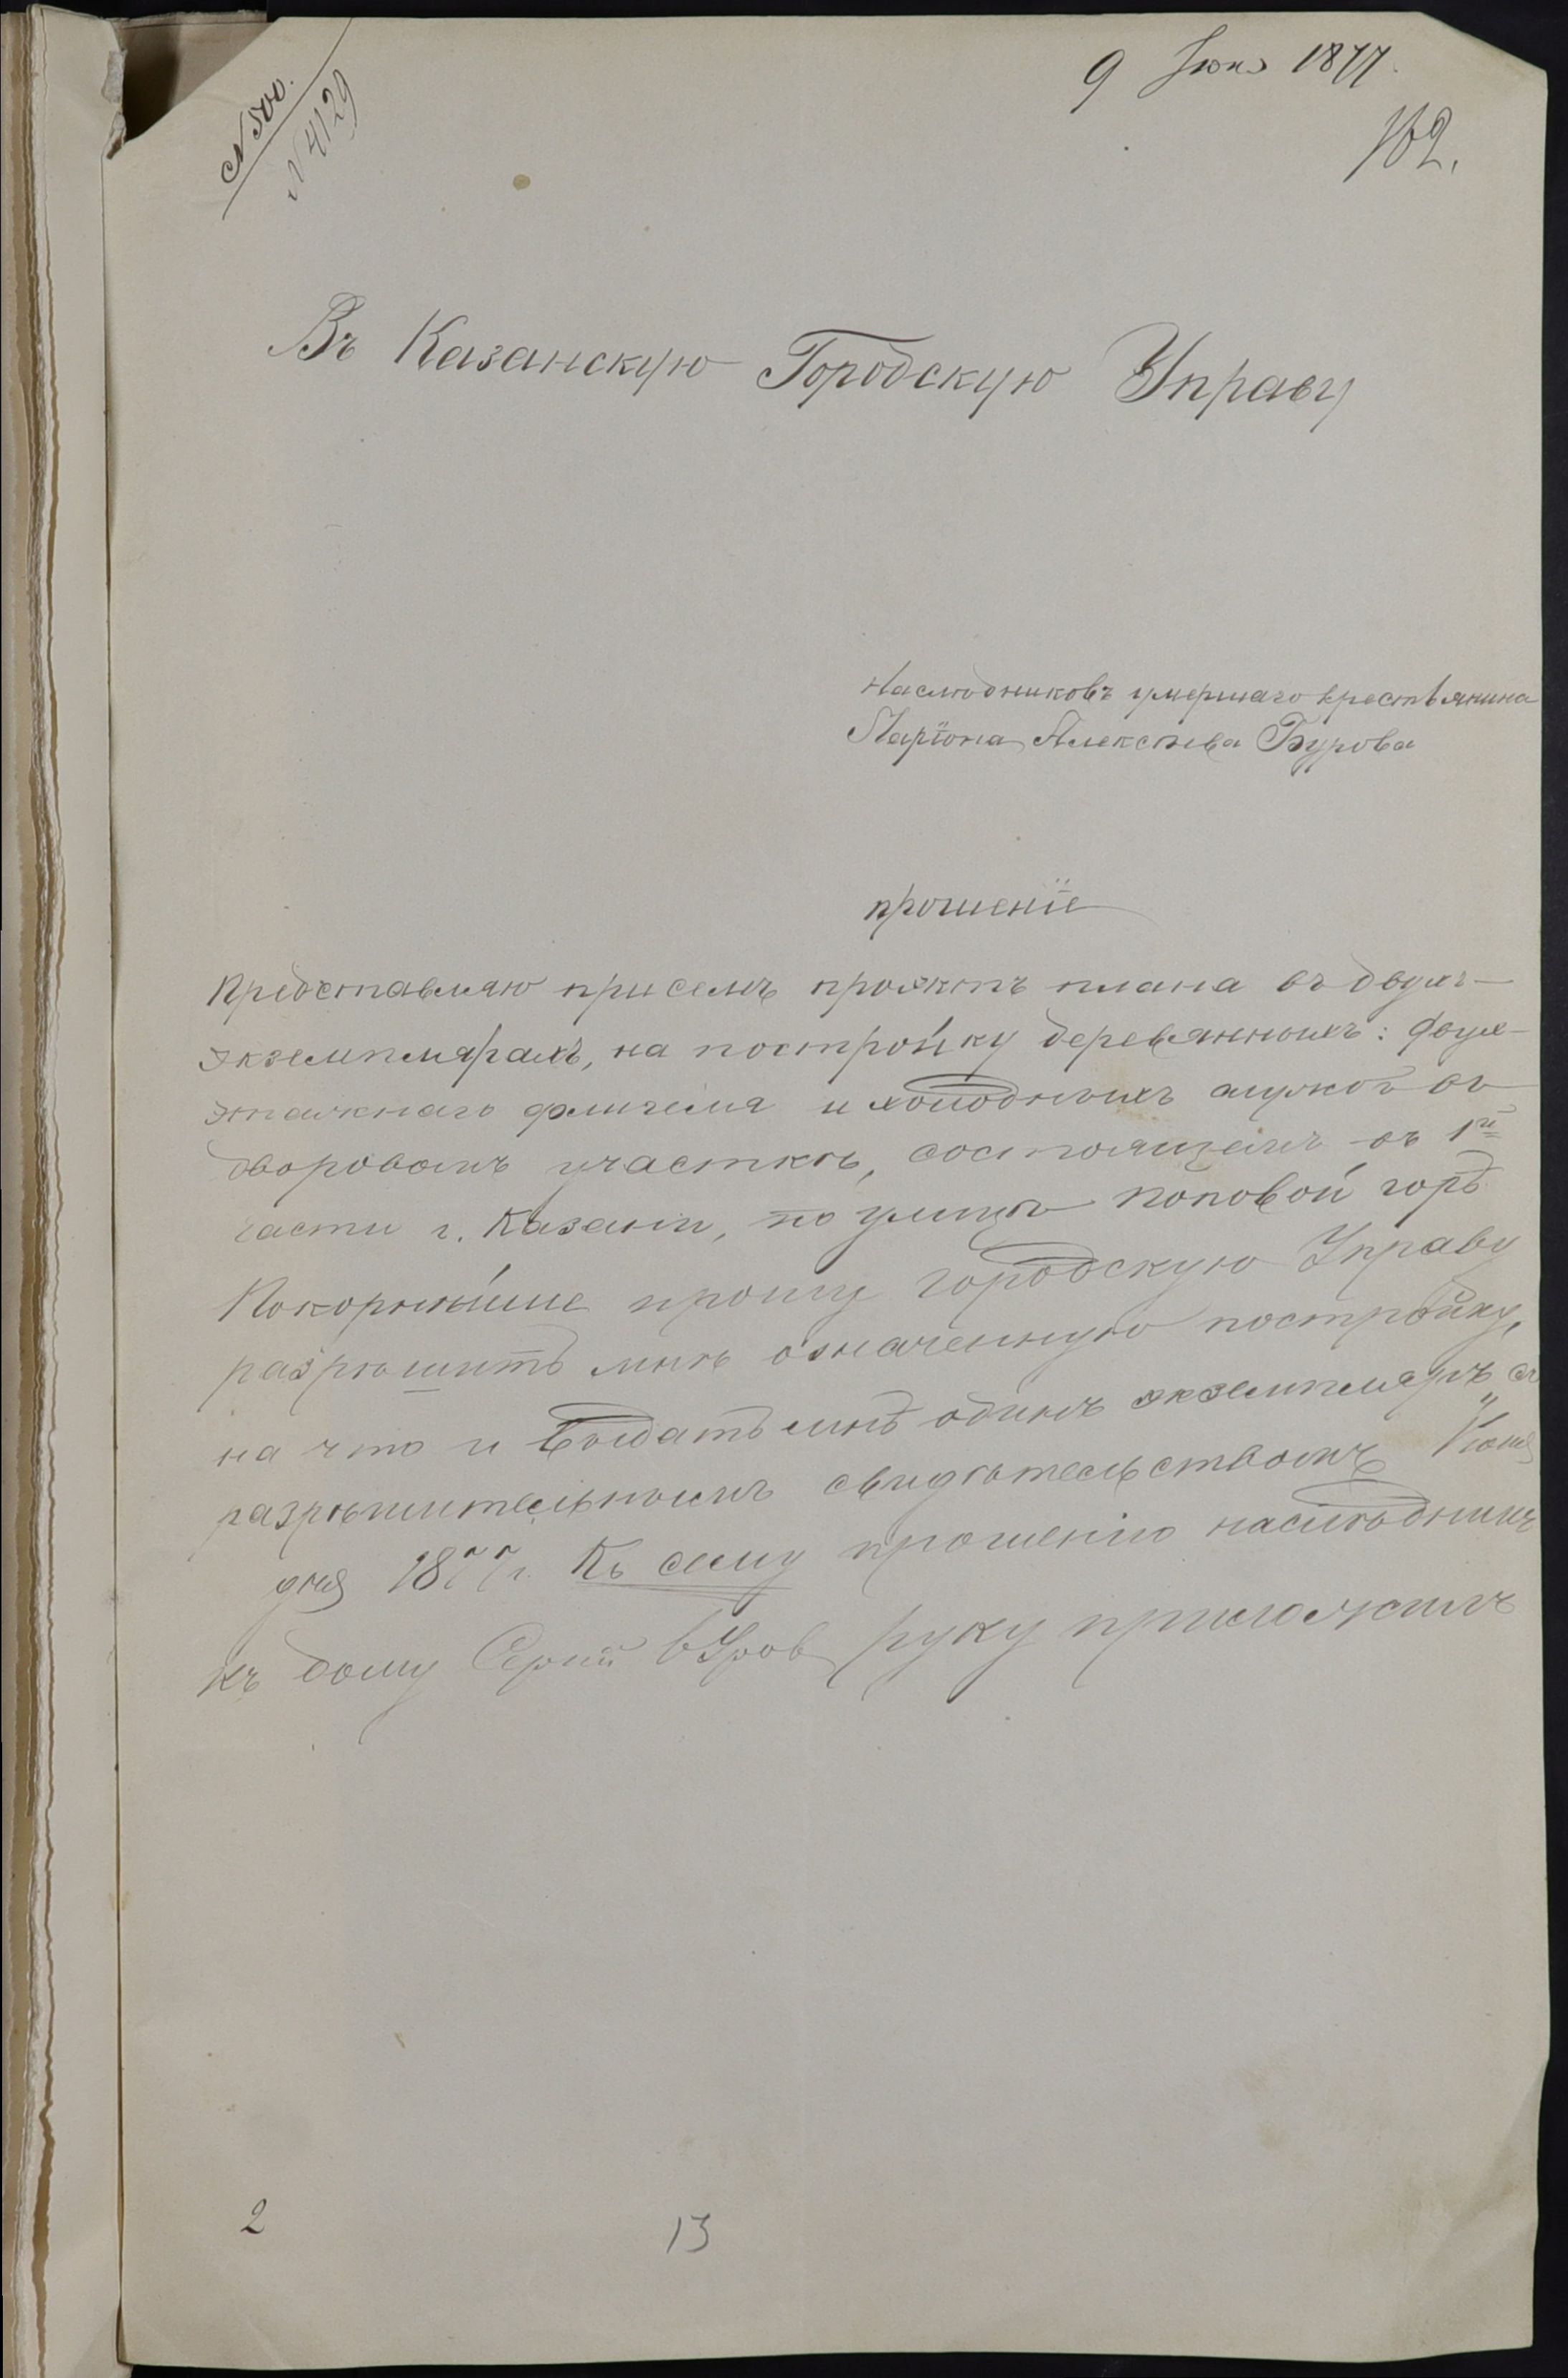 9 Июня 1877.
162.
N 500.
N 4129
Въ Казанскую Городскую Управу
Наслѣдниковъ умершаго крестьянина
Ларіона Алексѣева Бурова
прошеніе
Представляю присемъ проэктъ плана въ двухъ
экземплярахъ, на постройку деревянныхъ: двух-
этажнаго флигеля и холодныхъ службъ въ
дворовомъ участкѣ, состоящемъ въ 1й
части г. Казани, по улицѣ Поповой горѣ
Покорнѣйше прошу Городскую Управу
разрѣшить мнѣ означенную постройку,
на что и выдать мнѣ одинъ экземпляръ съ
разрѣшительнымъ свидѣтельствомъ Іюня
дня 1877 г. Къ сему прошенію наслѣдникъ
къ дому Сергій Буров руку приложилъ
2
13